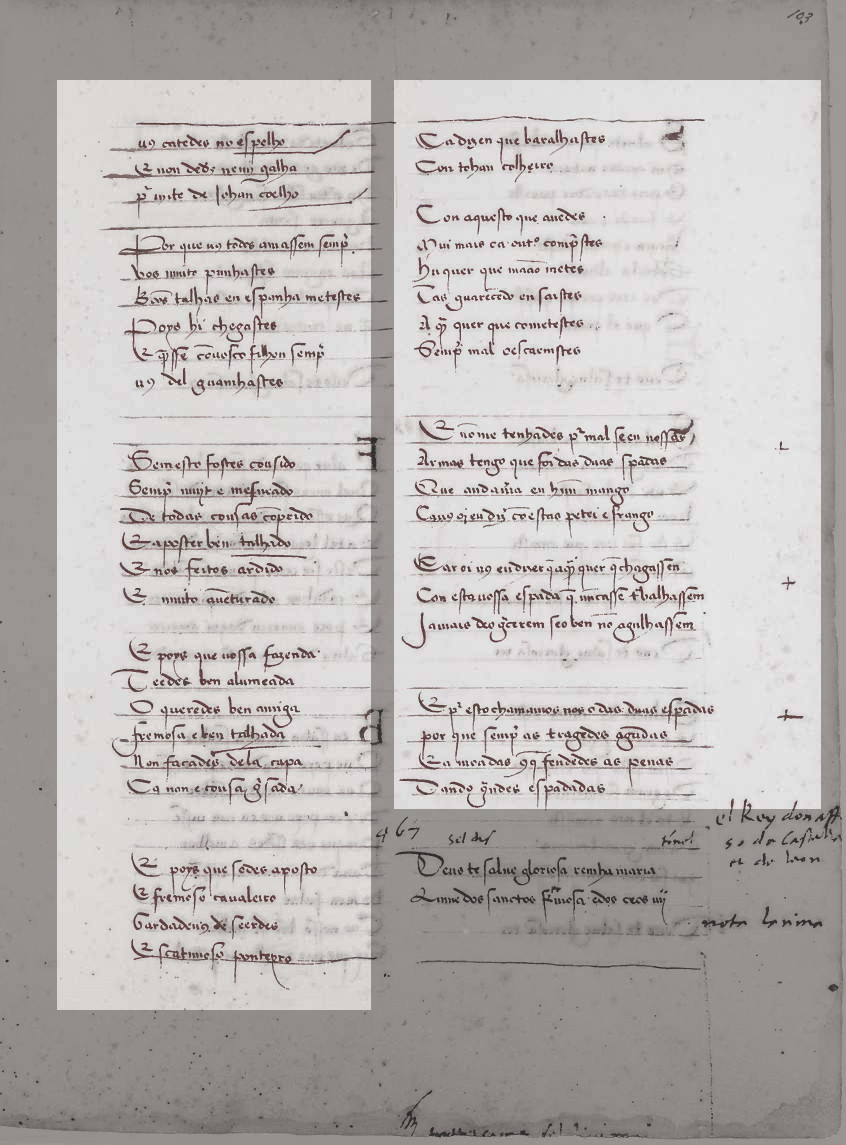 103
uꝯ catedes no espelho
E non dedes nemigalha
por mite de Johan coelho
Por que uꝯ todos amassem semp̃
Vos muito punhastes
Bõos talhos en espanha metestes
Poys hi chegastes
E q̃ sse cõuosco filhou semp̃
uꝯ del guanhastes
Sem esto fostes cousido
Semp̃ muyt e mesurado
De todas cousas cõprido
E aposto e ben talhado
E nos feitos ardido
E muito auẽturado
E poys que uossa fazenda
Teedes ben alumeada
O queredes ben amiga
fremosa e ben talhada
Non facades dela capa
Ca non e cousa g̃sada
E poys que sodes aposto
E fremoso caualeiro
Gardadeuꝯ de seerdes
Escatimoso ponteyro
Ca dizen que baralhastes
Con Johan colheyro
Con aquesto que auedes
Mui mais ca outro comp̃stes
Hu quer que mãao metes
Tas guarecẽdo en saistes
A q̃ quer que cometestes
Semp̃ mal oescarnistes
E nõme tenhades por mal se en uossas
Armas tengo que foi das duas spadas
Que andauã en hũu mango
Ca uꝯ oi eu diz̃ cõ estas petei e frango
E ar oi uꝯ eu dizer q̃ aq̃ quer q̃ chagassen
Con esta uossa espada q̃ nũcasse t̃balhassem
Jamais deo gorecerem se o ben nõ agulhassem
E por esto chamamos nos o das duas espadas
por que semp̃ as tragedes agudas
E amoadas cõ q̃ fendedes as penas
Dando g̃ndes espadadas
467
Deus te salue gloriosa reinha maria
Lume dos sanctos fr̃mosa e dos ceos uij
el Rey don aff
so de Castella
et de leon